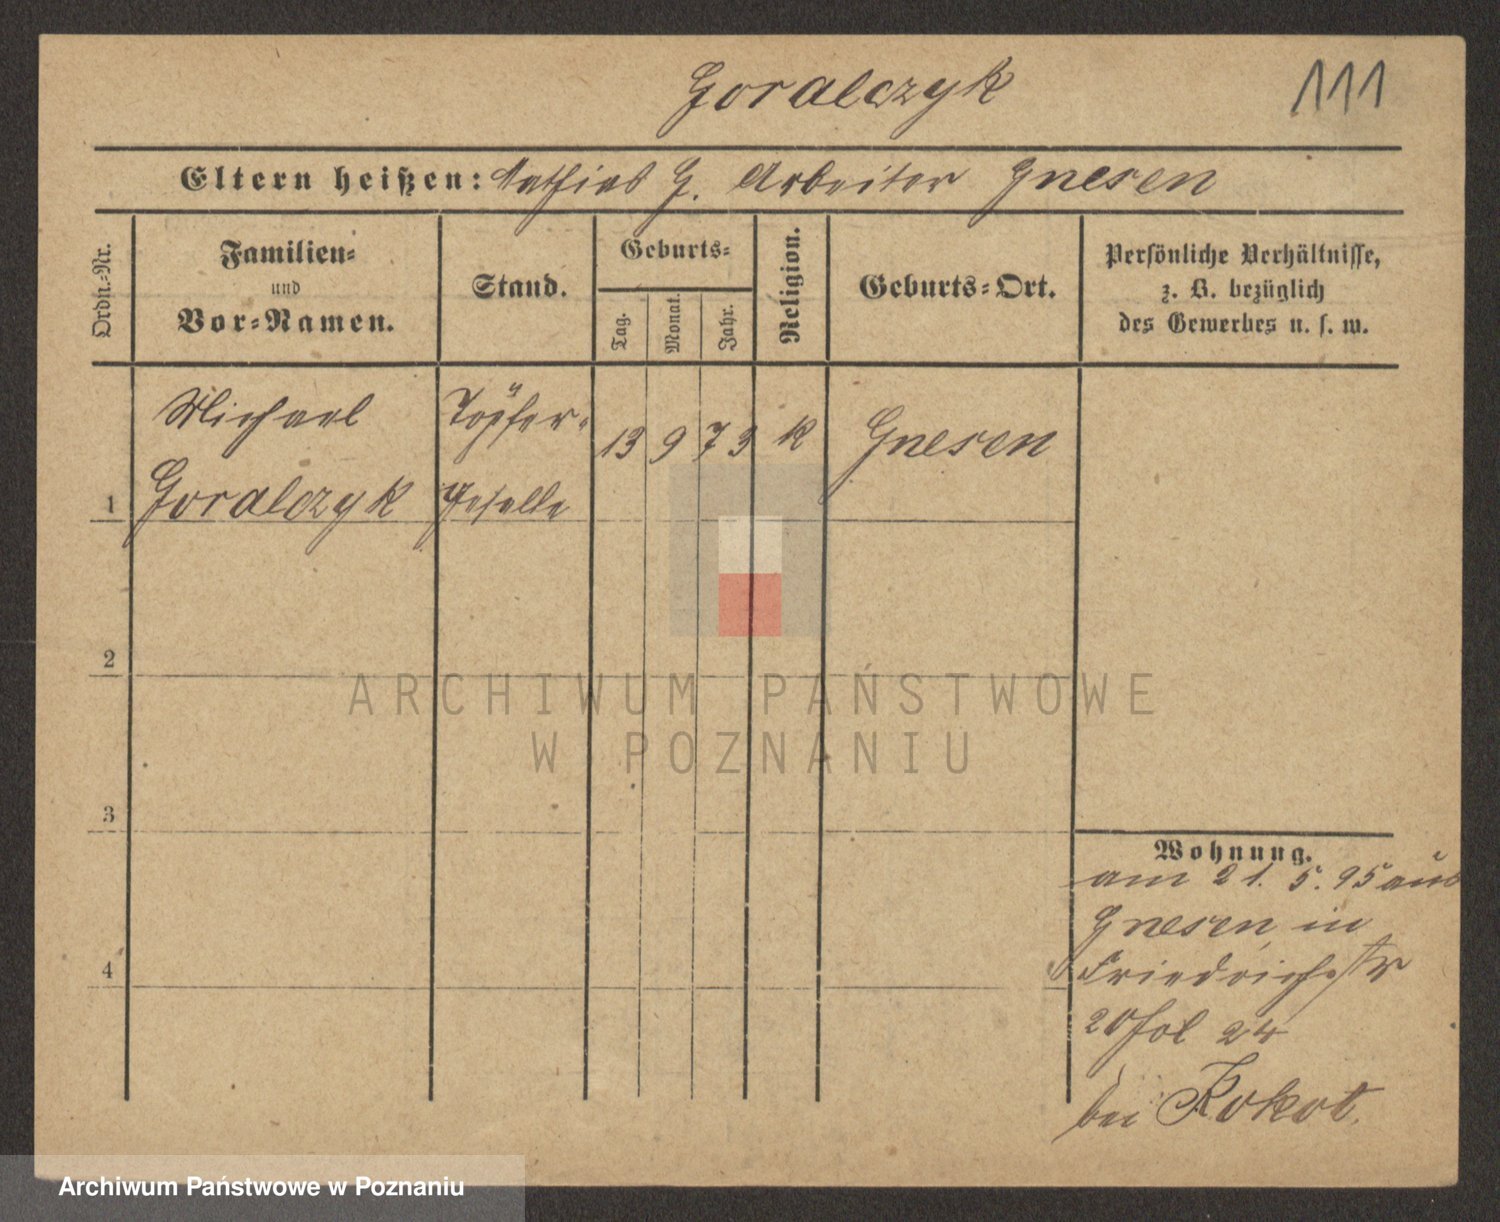 Goralczyk
111
Eltern heißen: Mathias G. Arbeiter Gnesen
Ordn.-Nr.
Familien-
und
Vor-Namen.
Stand.
Geburts-
Tag.
Monat.
Jahr.
Religion.
Geburts-Ort.
Persönliche Verhältnisse,
z. B. bezüglich
des Gewerbes u. s. w.
Michael
Goralczyk
Töpfer-
Geselle
13 9 73 k Gnesen
1
2
3
4
Wohnung.
am 21. 5. 95 aus
Gnesen in
Friedrichstr
20 fol 24
bei Kokot.
ARCHIWUM PAŃSTWOWE
W POZNANIU
Archiwum Państwowe w Poznaniu